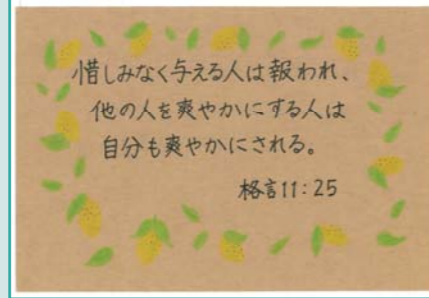 惜しみなく与える人は報われ、
他の人を爽やかにする人は
自分も爽やかにされる。
格言11:25